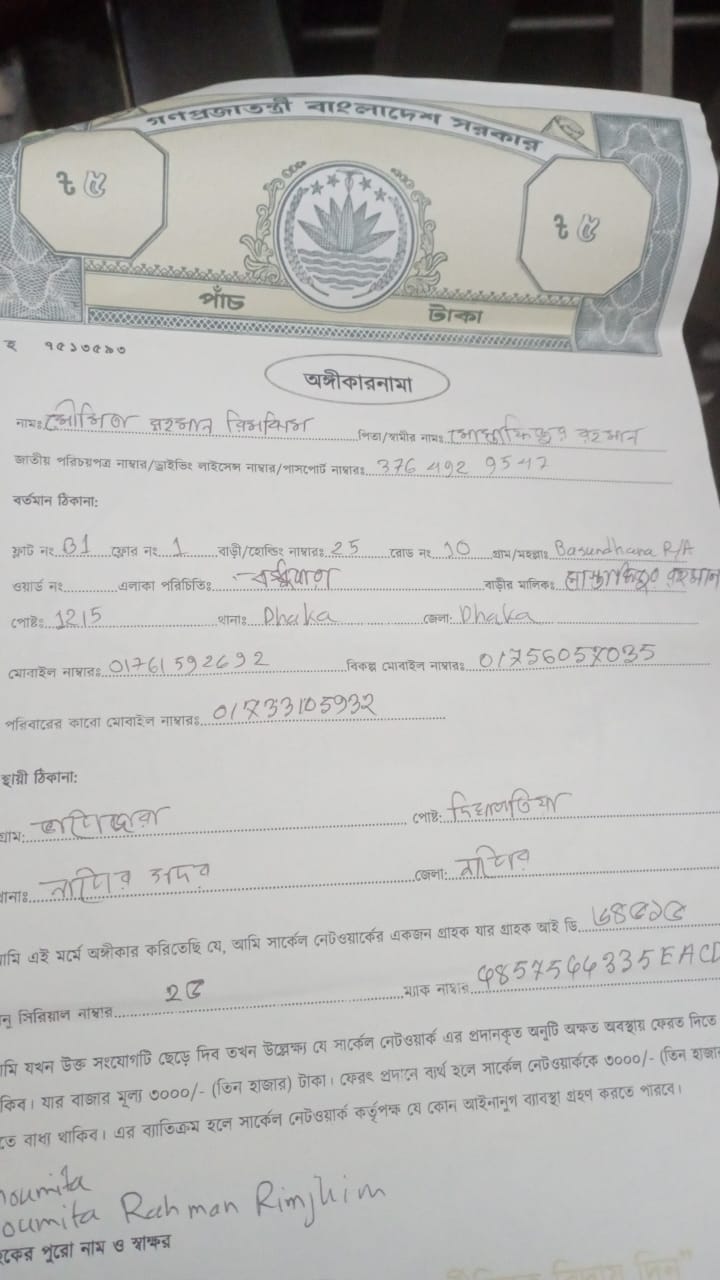 গণপ্রজাতন্ত্রী বাংলাদেশ সরকার
৳ ৫ ৳ ৫
পাঁচ টাকা
অঙ্গীকারনামা
নামঃ মৌমিতা রহমান রিমঝিম পিতা/স্বামীর নামঃ মোস্তাফিজুর রহমান
জাতীয় পরিচয়পত্র নাম্বার/ড্রাইভিং লাইসেন্স নাম্বার/পাসপোর্ট নাম্বারঃ 376 492 9547
বর্তমান ঠিকানা:
ফ্লাট নং B1 ফ্লোর নং 1 বাড়ী/হোল্ডিং নাম্বারঃ 25 রোড নং 10 গ্রাম/মহল্লাঃ Basundhara R/A
ওয়ার্ড নং এলাকা পরিচিতিঃ বাড়ীর মালিকঃ মোস্তাফিজুর রহমান
পোষ্টঃ 1215 থানাঃ Dhaka জেলা: Dhaka
মোবাইল নাম্বারঃ 01761592692 বিকল্প মোবাইল নাম্বারঃ 01756057035
পরিবারের কারো মোবাইল নাম্বারঃ 01733105932
স্থায়ী ঠিকানা:
পোষ্ট: দিঘাপতিয়া
নাটোর সদর জেলা: নাটোর
এই মর্মে অঙ্গীকার করিতেছি যে, আমি সার্কেল নেটওয়ার্কের একজন গ্রাহক যার গ্রাহক আই ডি
সিরিয়াল নাম্বার ম্যাক নাম্বার 4857544335EACD
যখন উক্ত সংযোগটি ছেড়ে দিব তখন উল্লেক্ষ্য যে সার্কেল নেটওয়ার্ক এর প্রদানকৃত অনুটি অক্ষত অবস্থায় ফেরত দিতে
যার বাজার মূল্য ৩০০০/- (তিন হাজার) টাকা। ফেরৎ প্রদানে ব্যর্থ হলে সার্কেল নেটওয়ার্ককে ৩০০০/- (তিন হাজার
বাধ্য থাকিব। এর ব্যতিক্রম হলে সার্কেল নেটওয়ার্ক কর্তৃপক্ষ যে কোন আইনানুগ ব্যবস্থা গ্রহণ করতে পারবে।
oumita
oumita Rahman Rimjhim
পুরো নাম ও স্বাক্ষর